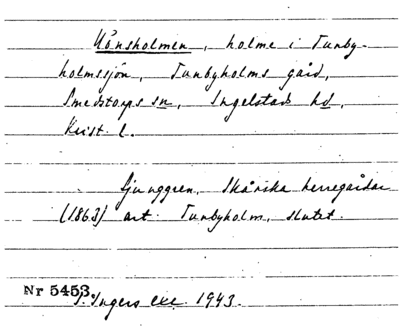 Hönsholmen, holme i Tunby-
holmssjön, Tunbyholms gård,
Smedstorps sn, Ingelstads hd,
Krist. l.
Ljunggren, Skånska herregårdar
(1863) art. Tunbyholm, slutet.
Nr 5453.
I. Ingers exc. 1943.